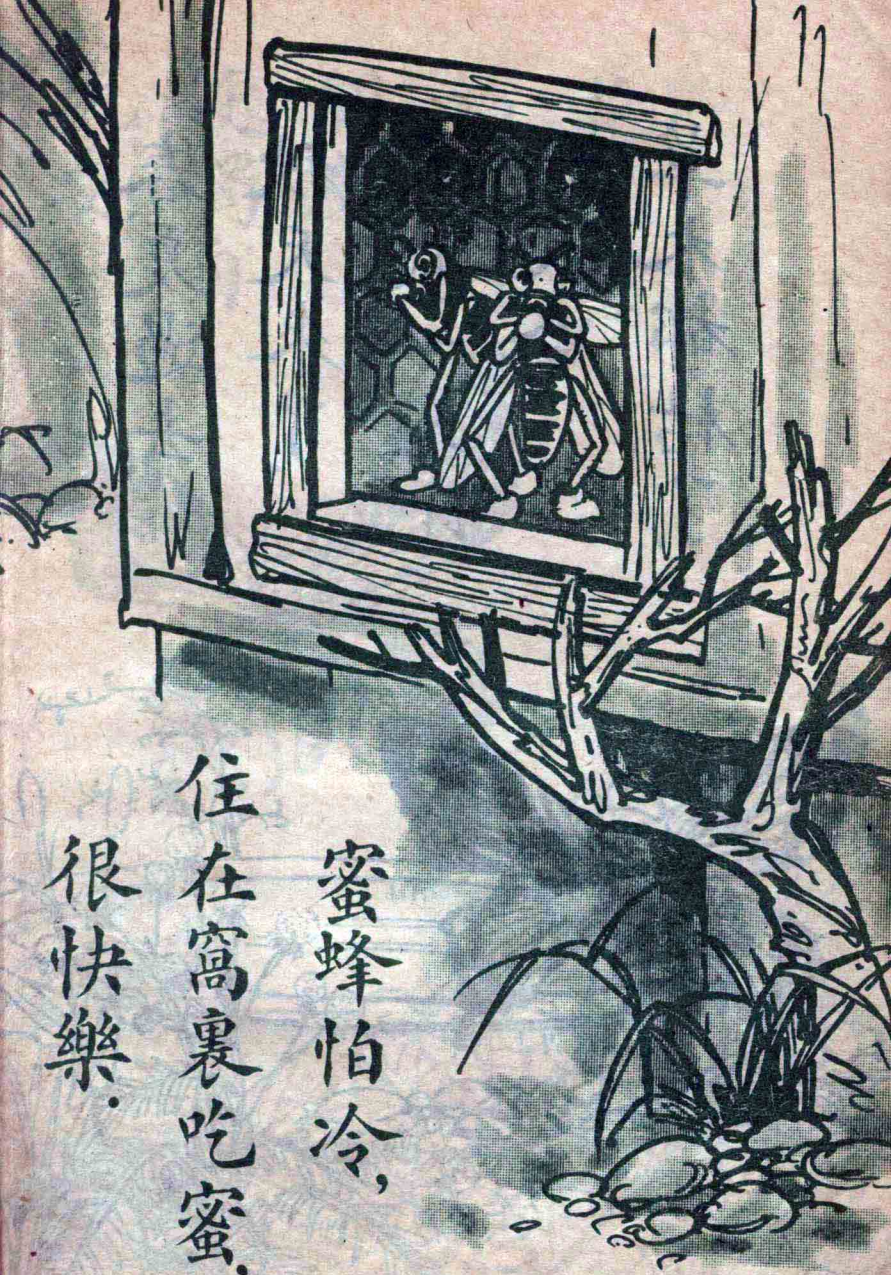 蜜蜂怕冷，
住在窩裏吃蜜，
很快樂．